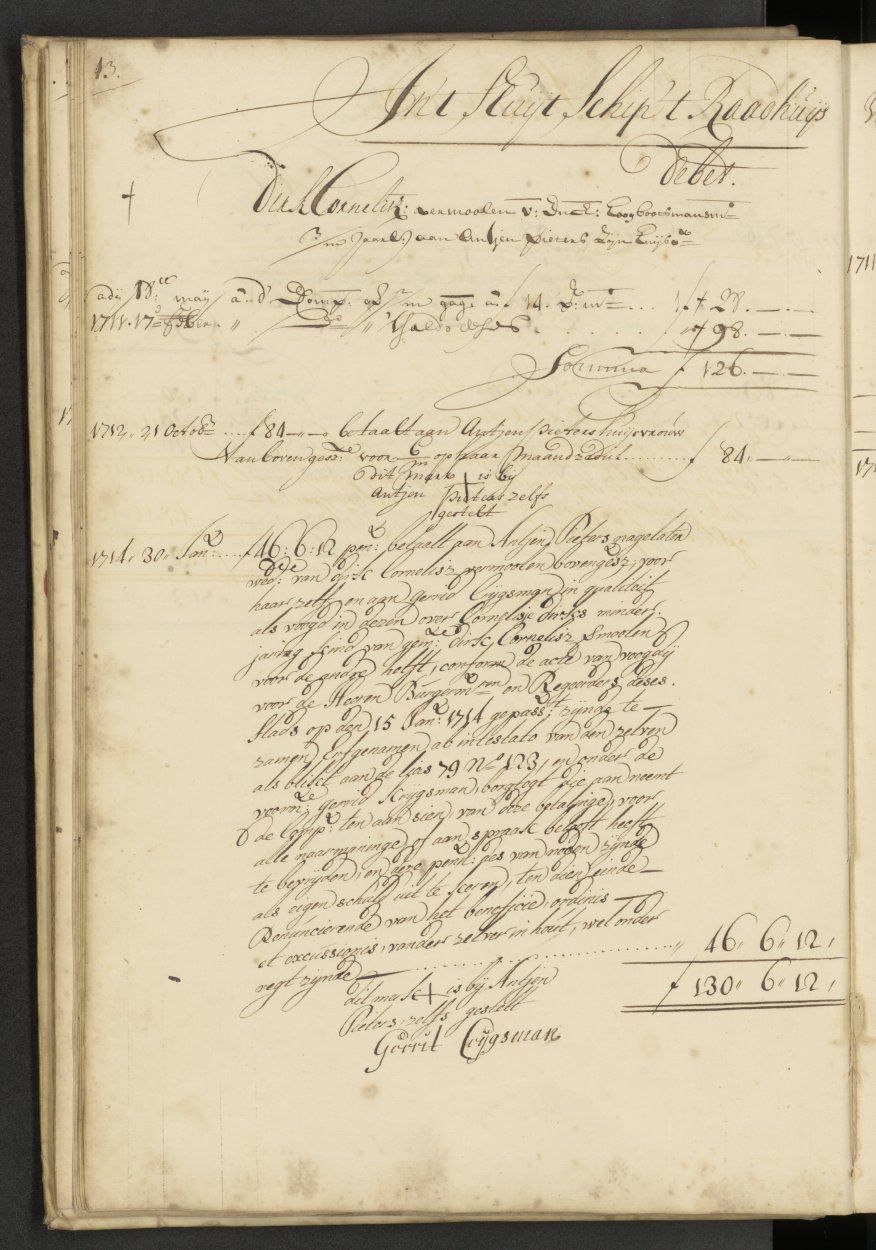 13.
In't fluyt Schip 't Raadhuys
Debet.
Dirk Cornelisz: vermoolen v: hoogbootsmans mt
3/m Jaarl: aan Antjen Pieters zijn huijsv
adij 18: maij aan d' Comp: op 2/m gage a f 14. p:r m . . . f 28. — . —
1711. 17 . . . . " Saldo deses . . . . . f 98. — . —
Somma f 126. — . —
1712„ 21 Octob: .... f 84 —„—„ betaalt aan Antjen Pieters huijsvrouw
van boven gesz: voor 6 op haar maandzedul .......... f 84„ — „ —
dit merk + is bij
Antjen Pieters zelfs
gestelt
1714„ 30„ Jan: .... f 46: 6: 12 pen: betaalt aan Antjen Pieters nagelaten
wed: van dirk Cornelisz vermoolen bovengesz, voor
haar zelfs en aan Gerrid Crijgsman in qualiteit
als voogd in dezen over Cornelisje dirks minder-
jarig kind van gem: dirk Cornelisz Smoolen
voor de andre helft, conform de acte van voogdij
voor de Heeren Burgerm:ren en Regeerders deses
stads op den 15 Jan: 1714 gepass:t zijnde te —
zamen Erfgenamen ab intestato van den zelven
als blijkt aan de lias 79 N:o 123, en onder de
voorn: gerrid Krijgsman, borgtogt die aanneemt
de Comp: ten aansien van deze betalinge, voor
alle naarmaninge of aanspraak belooft heeft
te bevrijden, en deze penn: des van noden zijnde
als eigen schult uit te keren, ten dien einde —
Renuncierende van het beneficie, ordinis
et excussionis, vander zelver inhout, wel onder
regt zijnde — .......... „ 46„ 6„ 12„
f 130„ 6„ 12„
dit merk + is bij Antjen
Pieters, zelfs gestelt
Gerrit Crijgsman